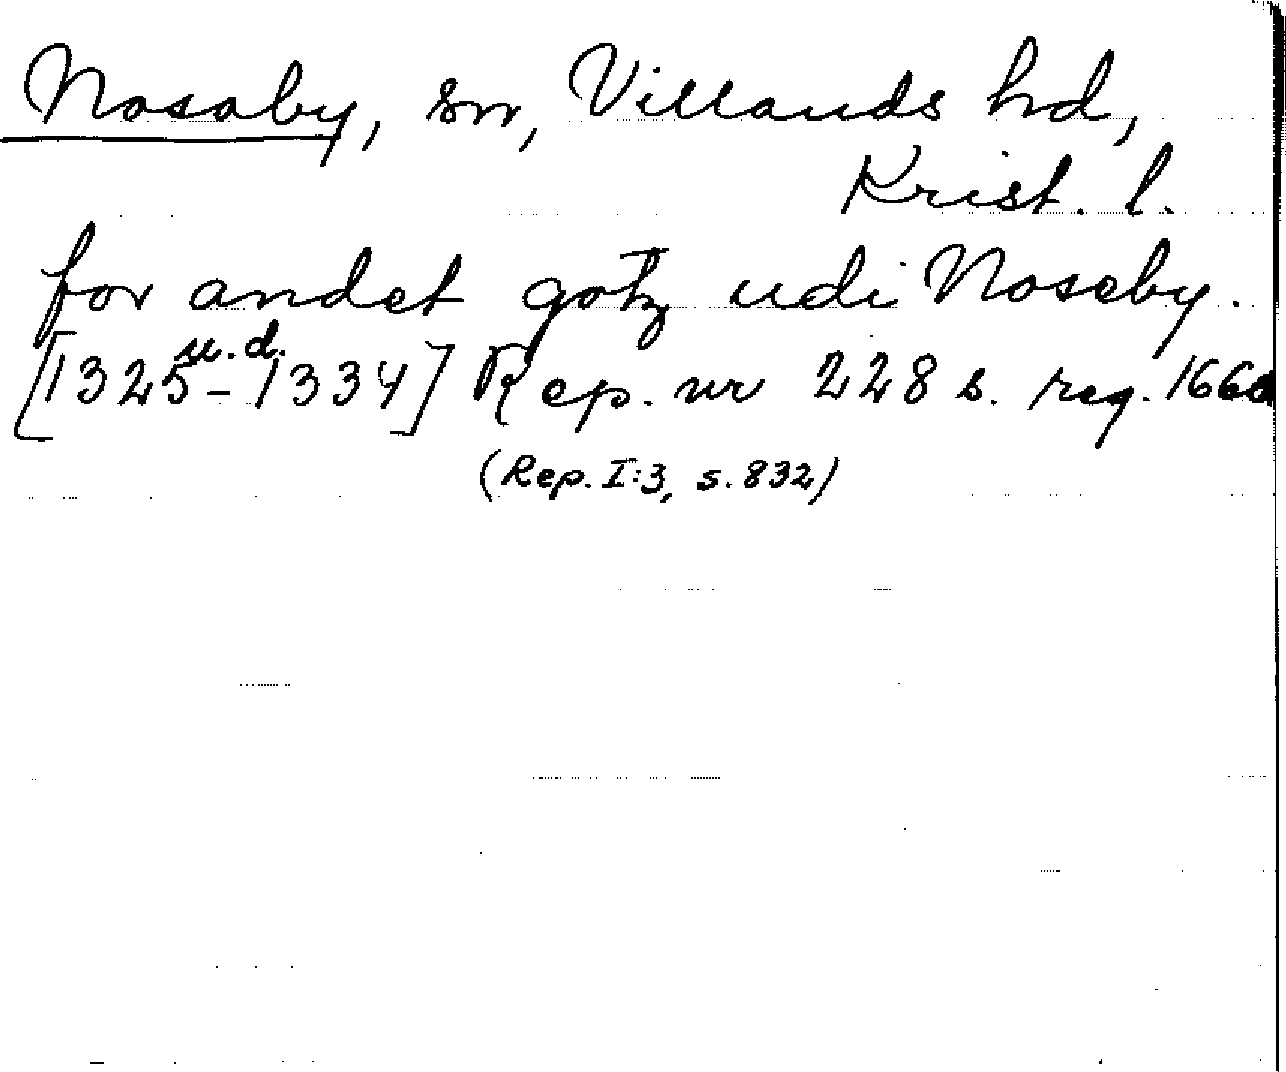 Nosaby, sn, Villands hd,
Krist. l.
for andet gotz udi Noseby.
u. d.
[1325-1334] Rep. nr 228 b. reg. 1660
(Rep. I:3, s. 832)